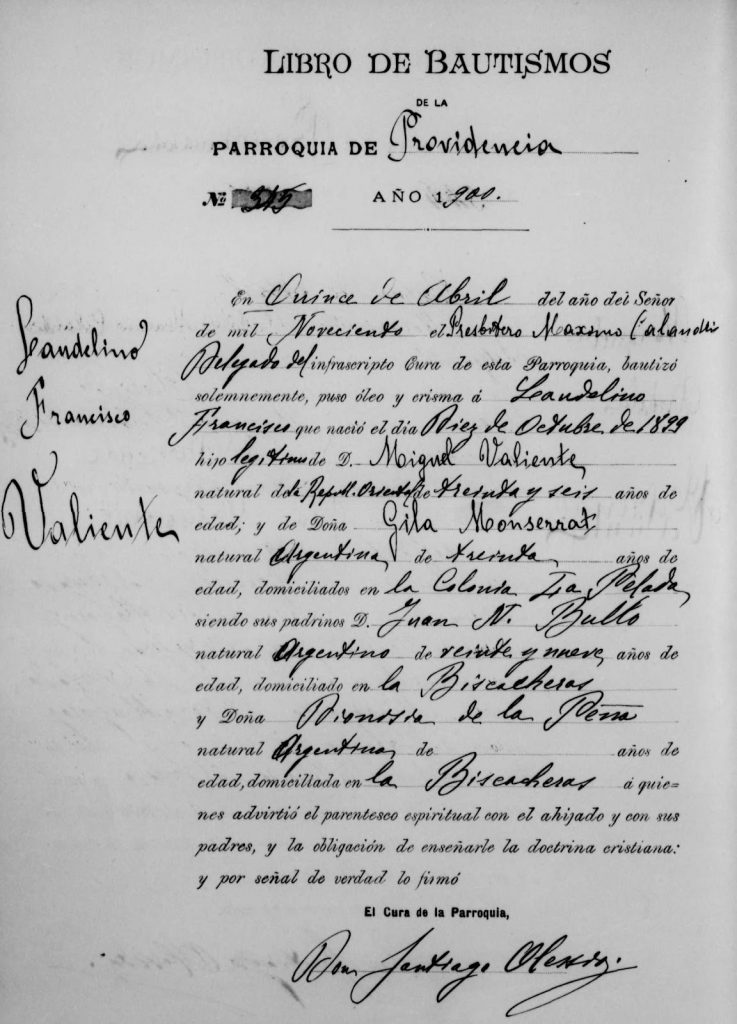 LIBRO DE BAUTISMOS
DE LA
PARROQUIA DE Providencia
Nº 315 AÑO 1,900.
En Quince de Abril del año del Señor
de mil Noveciento el Presbitero Maximo Calandri
Delegado del infrascripto Cura de esta Parroquia, bautizó
solemnemente, puso óleo y crisma á Leandelino
Francisco que nació el día Diez de Octubre de 1899
hijo legitimo de D. Miguel Valiente
natural de la Repbl. Oriental de treinta y seis años de
edad; y de Doña Gila Monserrat
natural Argentina de treinta años de
edad, domiciliados en la Colonia La Pelada
siendo sus padrinos D. Juan N. Bullo
natural Argentino de veinte y nueve años de
edad, domiciliado en la Biscacheras
y Doña Dionisia de la Peña
natural Argentina de años de
edad, domiciliada en la Biscacheras á quie-
nes advirtió el parentesco espiritual con el ahijado y con sus
padres, y la obligación de enseñarle la doctrina cristiana:
y por señal de verdad lo firmó
El Cura de la Parroquia,
Don Santiago Olessio.
Leandelino
Francisco
Valiente